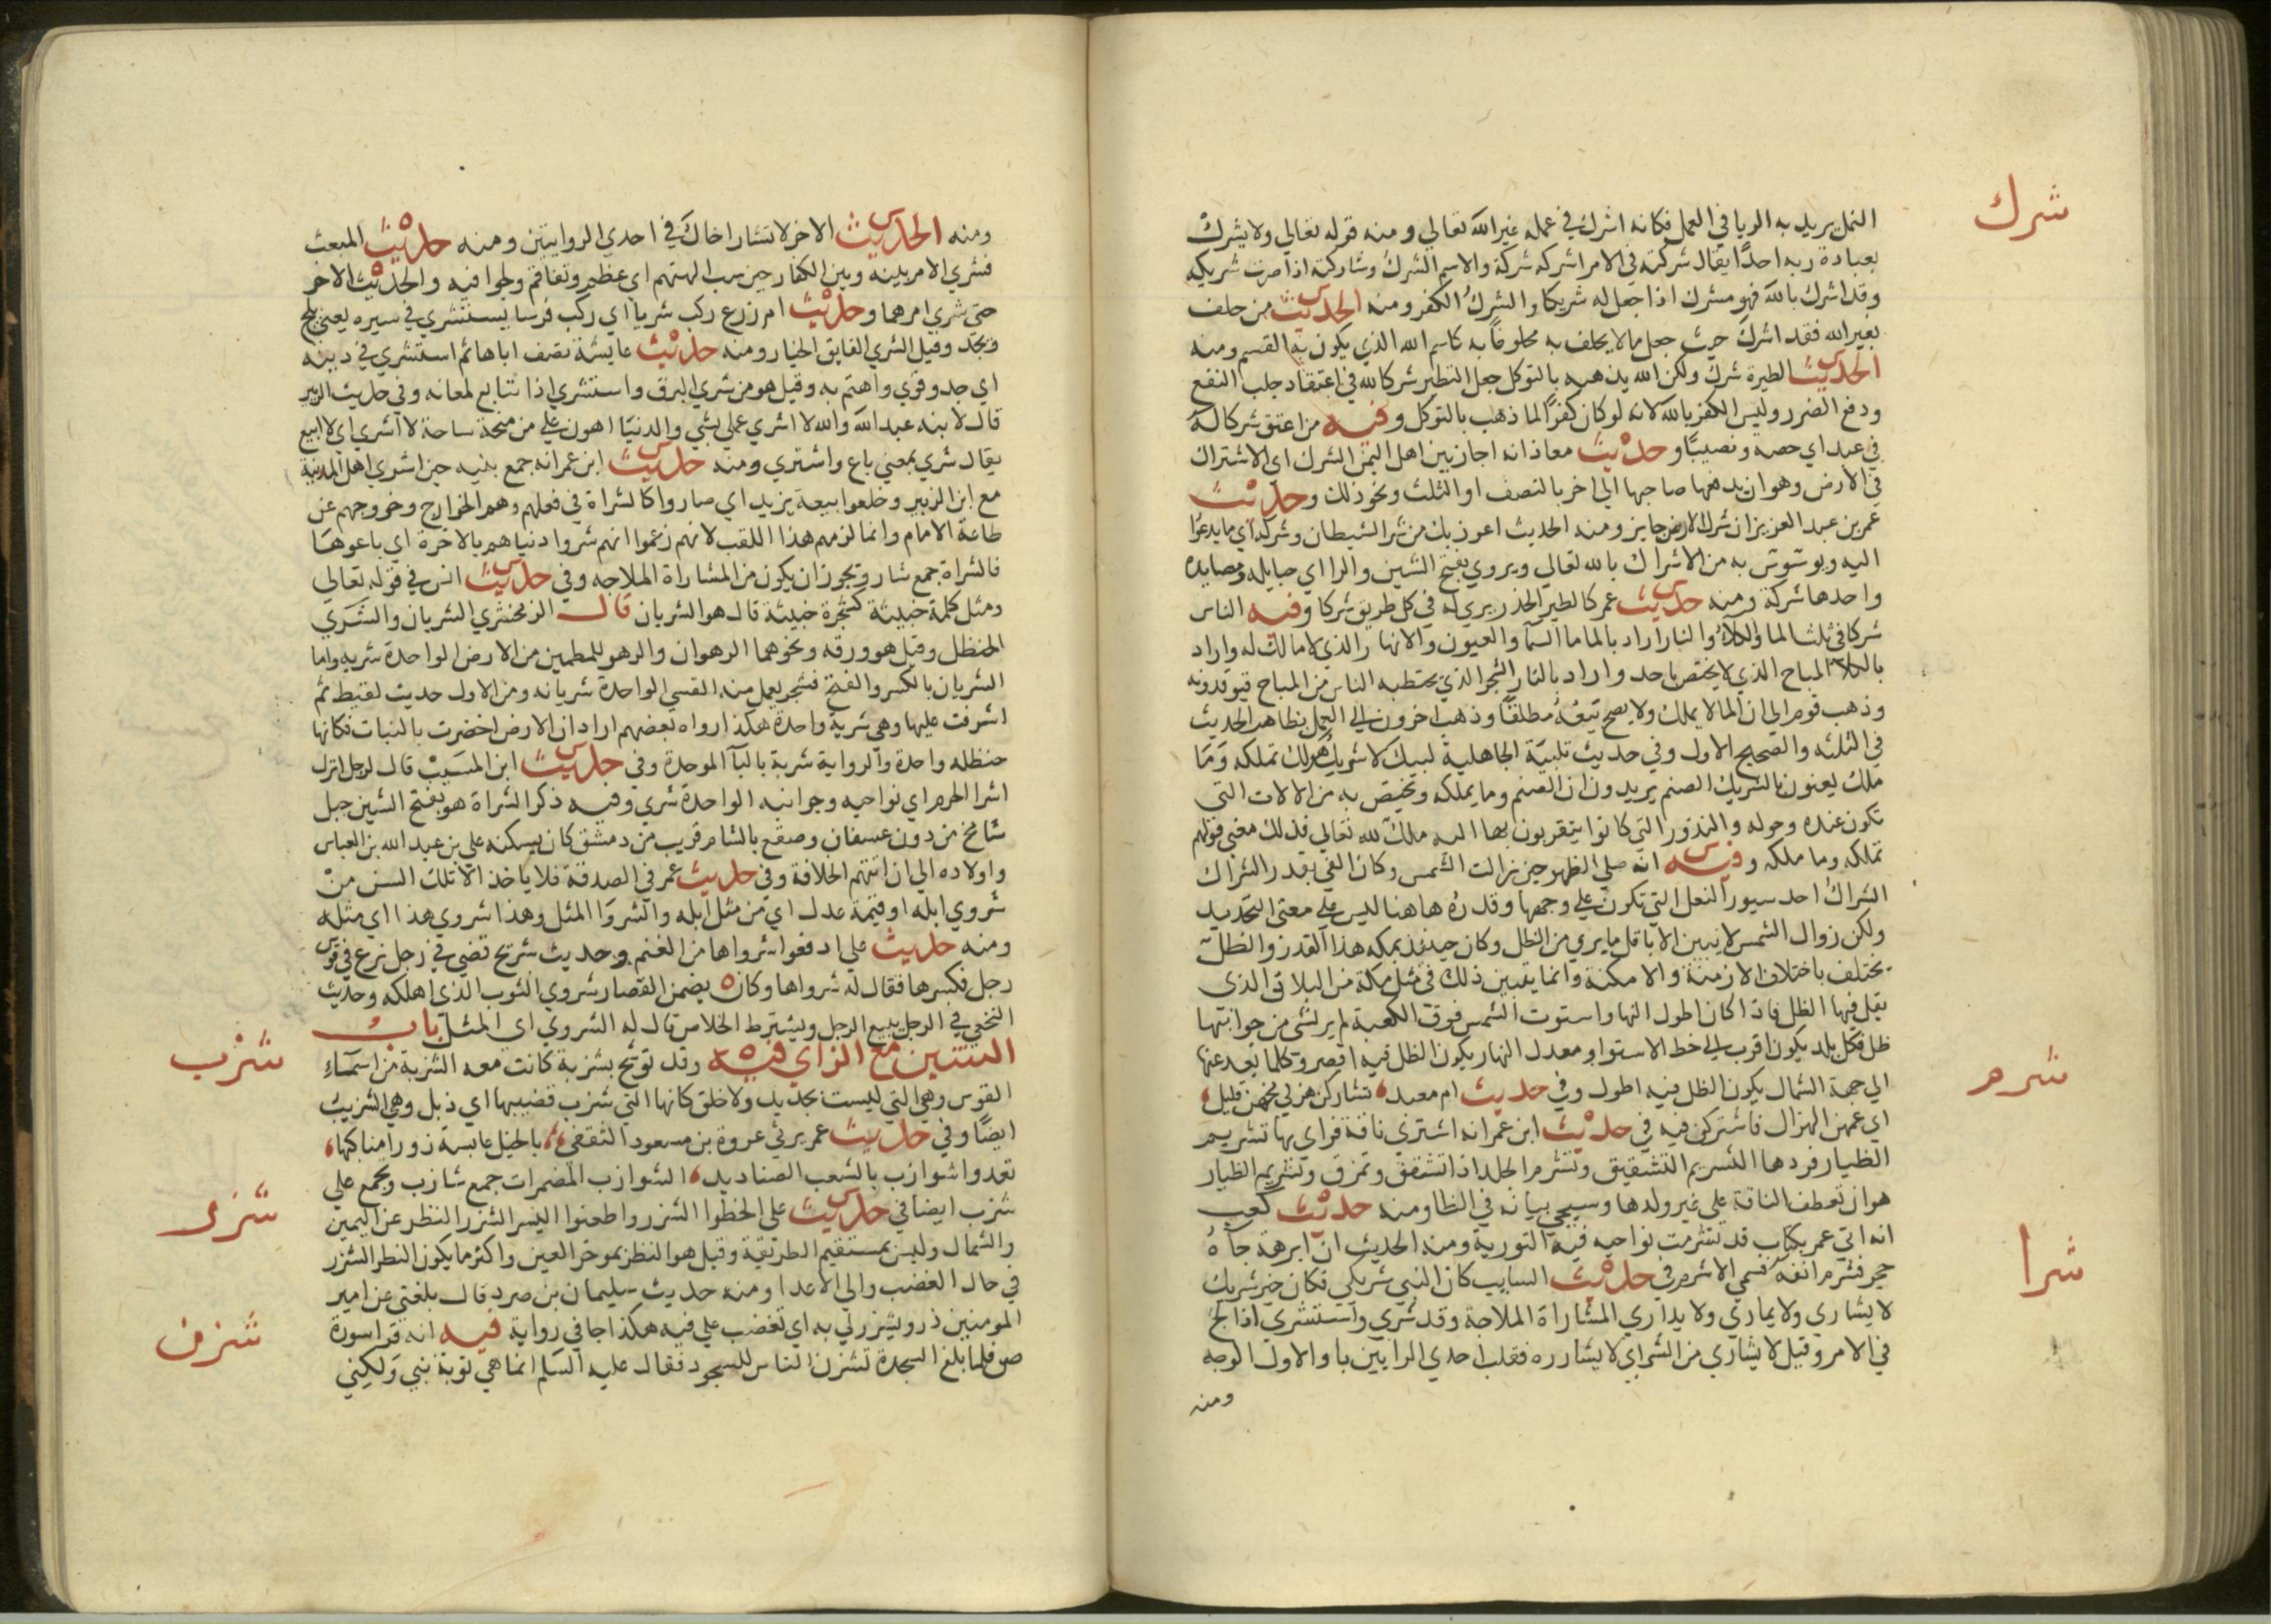 شرك
النمل يريد به الريا في العمل فكانه اشرك في عمله غير الله تعالي ومنه قوله تعالي ولا يشرك
بعبادة ربه احدًا يقال شركته في الامر اشركه شركة والاسم الشرك وشاركته اذا صرت شريكه
وقد اشرك بالله فهو مشرك اذا جعل له شريكا والشرك الكفر ومنه الحديث من حلف
بغير الله فقد اشرك حيث جعل ما لا يحلف به محلوفًا به كاسم الله الذي يكون به القسم ومنه
الحديث الطيرة شرك ولكن الله يذهبه بالتوكل جعل التطير شركا لله في اعتقاد جلب النفع
ودفع الضرر وليس الكفر بالله لانه لو كان كفرًا لما ذهب بالتوكل وفيه من اعتق شركا له
في عبد اي حصه ونصيبًا وحديث معاذ انه اجاز بين اهل اليمن الشرك اي الاشتراك
في الارض وهو ان يدفعها صاحبها الي اخر بالنصف او الثلث ونحو ذلك وحديث
عمر بن عبد العزيز ان شرك الارض جايز ومنه الحديث اعوذ بك من شر الشيطان وشركه اي ما يدعوا
اليه ويوسوس به من الاشراك بالله تعالي ويروي بفتح الشين والرا اي حبايله ومصايده
واحدها شركة ومنه حديث عمر كالطير الحذر يري له في كل طريق شركا وفيه الناس
شركا في ثلث الما والكلاء والنار اراد بالما ما السمآ والعيون والانهار الذي لا مالك له واراد
بالكلاء المباح الذي لا يختص باحد واراد بالنار الشجر الذي يحتطبه الناس من المباح فيوقدونه
وذهب قوم الي ان الما لا يملك ولا يصح بيعه مطلقًا وذهب اخرون الي العمل بظاهر الحديث
في الثلثه والصحيح الاول وفي حديث تلبية الجاهلية لبيك لا شريك هو لك تملكه وما
ملك يعنون بالشريك الصنم يريدون ان الصنم وما يملكه ويختص به من الالات التي
تكون عنده وحوله والنذور التي كانوا يتقربون بها اليه ملك لله تعالي فذلك معني قولهم
تملكه وما ملكه وفيه انه صلي الظهر حين زالت الشمس وكان الفي بقدر الشراك
الشراك احد سيور النعل التي تكون علي وجهها وقدره هاهنا ليس علي معني التحديد
ولكن زوال الشمس لا يبين الا باقل ما يري من الظل وكان حينئذ بمكه هذا القدر والظل
يختلف باختلاف الازمنة والامكنة وانما يتبين ذلك في مثل مكة من البلاد التي الذي
يقل فيها الظل فاذا كان اطول النهار واستوت الشمس فوق الكعبة لم ير لشي من جوانبها
ظل فكل بلد يكون اقرب الي خط الاستوا ومعدل النهار يكون الظل فيه اقصر وكلما بعد عنها
الي جهة الشمال يكون الظل فيه اطول وفي حديث ام معبد تشاركن هزلي مخهن قليل
شرم
اي عمهن الهزال فاشتركن فيه في حديث ابن عمر انه اشتري ناقة فراي بها تشريم
الظيار فردها التشريم التشقيق وتشرم الجلد اذا تشقق وتمزق وتشريم الظيار
هو ان تعطف الناقة علي غير ولدها وسيجي بيانه في الظا ومنه حديث كعب
انه اتي عمر بكتاب قد تشرمت نواحيه فيه التورية ومنه الحديث ان ابرهة جآه
شرا
حجر فشرم انفه فسمي الاشرم في حديث السايب كان النبي شريكي فكان خير شريك
لا يشاري ولا يماري ولا يداري المشاراة الملاجة وقد شري واستشري اذا لج
في الامر وقيل لا يشاري من الشر اي لا يشارره فقلب احدي الرايين يا والاول الوجه
ومنه
ومنه الحديث الاخر لا تشار اخاك في احدي الروايتين ومنه حديث المبعث
فشري الامر بينه وبين الكفار حين سب الهتهم اي عظم وتفاقم ولجوا فيه والحديث الاخر
حتي شري امرهما وحديث ام زرع ركب شريا اي ركب فرسا يستشري في سيره يعني يلج
ويجد وقيل الشري الفايق الخيار ومنه حديث عايشة تصف اباها ثم استشري في دينه
اي جد وقوي واهتم به وقيل هو من شري البرق واستشري اذا تتابع لمعانه وفي حديث الزبير
قال لابنه عبد الله والله لا اشري عملي بشي والدنيا اهون علي من منحة ساحة لا اشري اي لا ابيع
يقال شري بمعني باع واشتري ومنه حديث ابن عمر انه جمع بنيه حين اشري اهل المدينة
مع ابن الزبير وخلعوا بيعة يزيد اي صاروا كالشراة في فعلهم وهم الخوارج وخروجهم عن
طاعة الامام وانما لزمهم هذا اللقب لانهم زعموا انهم شروا دنياهم بالاخرة اي باعوها
فالشراة جمع شار ويجوز ان يكون من المشاراة الملاجه وفي حديث انس في قوله تعالي
ومثل كلمة خبيثة كشجرة خبيثة قال هو الشريان قال الزمخشري الشريان والشري
الحنظل وقيل هو ورقه ونحوهما الرهوان والرهو للمطمين من الارض الواحدة شريه واما
الشريان بالكسر والفتح فشجر يعمل منه القسي الواحدة شريانه ومن الاول حديث لقيط ثم
اشرفت عليها وهي شرية واحدة هكذا رواه بعضهم اراد ان الارض اخضرت بالنبات فكانها
حنظله واحدة والرواية شربة بالبآ الموحدة وفي حديث ابن المسيب قال لرجل انزل
اشرا الحرم اي نواحيه وجوانبه الواحدة شري وفيه ذكر الشراة هو بفتح الشين جبل
شامخ من دون عسفان وصقع بالشام قريب من دمشق كان يسكنه علي بن عبد الله بن العباس
واولاده الي ان اتتهم الخلافة وفي حديث عمر في الصدقة فلا ياخذ الا تلك السن من
شروي ابله او قيمة عدل اي من مثل ابله والشروا المثل وهذا شروي هذا اي مثله
ومنه حديث علي ادفعوا شرواها من الغنم وحديث شريح قضي في رجل نزع في قوس
رجل فكسرها فقال له شرواها وكان يضمن القصار شروي الثوب الذي اهلكه وحديث
النخعي في الرجل يبيع الرجل ويشترط الخلاص قال له الشروي اي المثل باب
الشين مع الزاي فيه وقد توشح بشزبة كانت معه الشزبة من اسمآء
شزب
القوس وهي التي ليست بجديد ولا خلق كانها التي شزب قضيبها اي ذبل وهي الشزيب
ايضًا وفي حديث عمر يرثي عروة بن مسعود الثقفي بالخيل عابسة زورا مناكبها
تعدوا شوازب بالشعث الصناديد الشوازب المضمرات جمع شازب ويجمع علي
شزر
شزب ايضا في حديث علي الحظوا الشزر واطعنوا اليسر الشزر النظر عن اليمين
والشمال وليس بمستقيم الطريقة وقيل هو النظر بموخر العين واكثر ما يكون النظر الشزر
في حال الغضب والي الاعدا ومنه حديث سليمان بن صرد قال بلغني عن امير
شزن
المومنين ذرو يشزر لي به اي تغضب علي فيه هكذا جا في رواية فيه انه قرا سورة
ص فلما بلغ السجدة تشزن الناس للسجود فقال عليه السلم انما هي توبة نبي ولكني